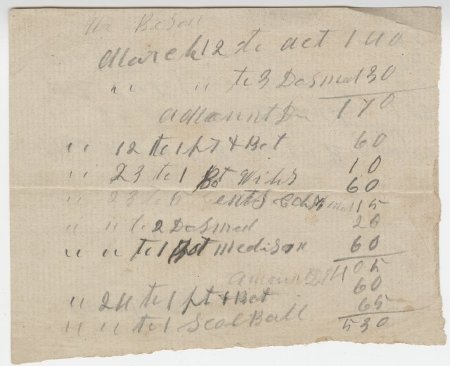 Mr Beson
March 12 to act 1 40
" " to 3 Dosmed 30
amount Du 170
" 12 to 1 pt & Bot 60
10
" 23 to 1 Bot 60
" 23 to 15
" " to 2 Dosmed 20
" " to 1 Bot medison 60
amount 4 05
" 24 to 1 pt & Bot 60
" " to 1 Seal Ball 65
5 30